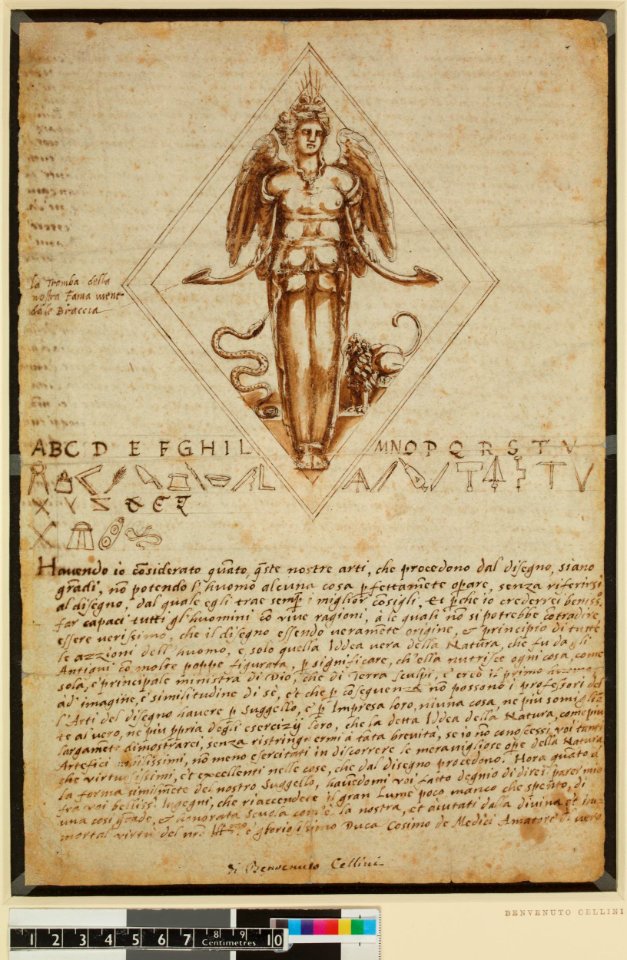 la Tromba della
nostra fama viene
dale Braccia
ABCD E FGHIL MNOPQRSTV
X Y Z & E
Havendo io cōsiderato quāto, q̄ste nostre arti, che procedono dal disegno, siano
grādi, nō potendo l'huomo alcuna cosa pfettamēte opare, senza riferirsi
al disegno, dal quale egli trae semp̄ i miglior cōsigli, et p̄che io crederrei beniss.o
far capaci tutti gl'huomini cō vive ragioni, a le quali nō si potrebbe cōtradire
essere verissimo, che il disegno essendo veramēte origine, et principio di tutte
le azzioni dell'huomo, e solo quella Iddea vera della Natura, che fu dagli
Antiqui cō molte poppe figurata, p significare, ch'ella nutrisce ogni cosa, come
sola, e principale ministra di Dio, che di Terra sculpì, e creò il primo huomo
ad imagine, e similitudine di sè, et che p cōseguenza nō possono i professori del
l'Arti del disegno havere p Suggello, e p Impresa loro, niuna cosa, ne più somigliā
te al vero, ne più ppria degli esercizij loro, che la detta Iddea della Natura, come più
largamēte dimostrarei, senza ristringermi à tāta brevità, se io nō conoscessi voi tanti
Artefici nobilissimi, nō meno esercitati in discorrere le meravigliose ope della Natura
che virtuosissimi, et excellenti nelle cose, che dal disegno procedono. Hora quāto
la forma similmēte del nostro Suggello, havēdomi voi fatto degnio di dire i parer mio
frà voi belliss. Ingegni, che riaccendere il gran Lume poco manco che spento, di
una così grāde, et honorata Scuola com'è la nostra, et aiutati dalla divina et im
mortal virtù del nr̄o Ill.mo e gloriosissimo Duca Cosimo de Medici Amatore di vero
di Benvenuto Cellini
BENVENUTO CELLINI
1 2 3 4 5 6 7 8 9 10
Centimetres